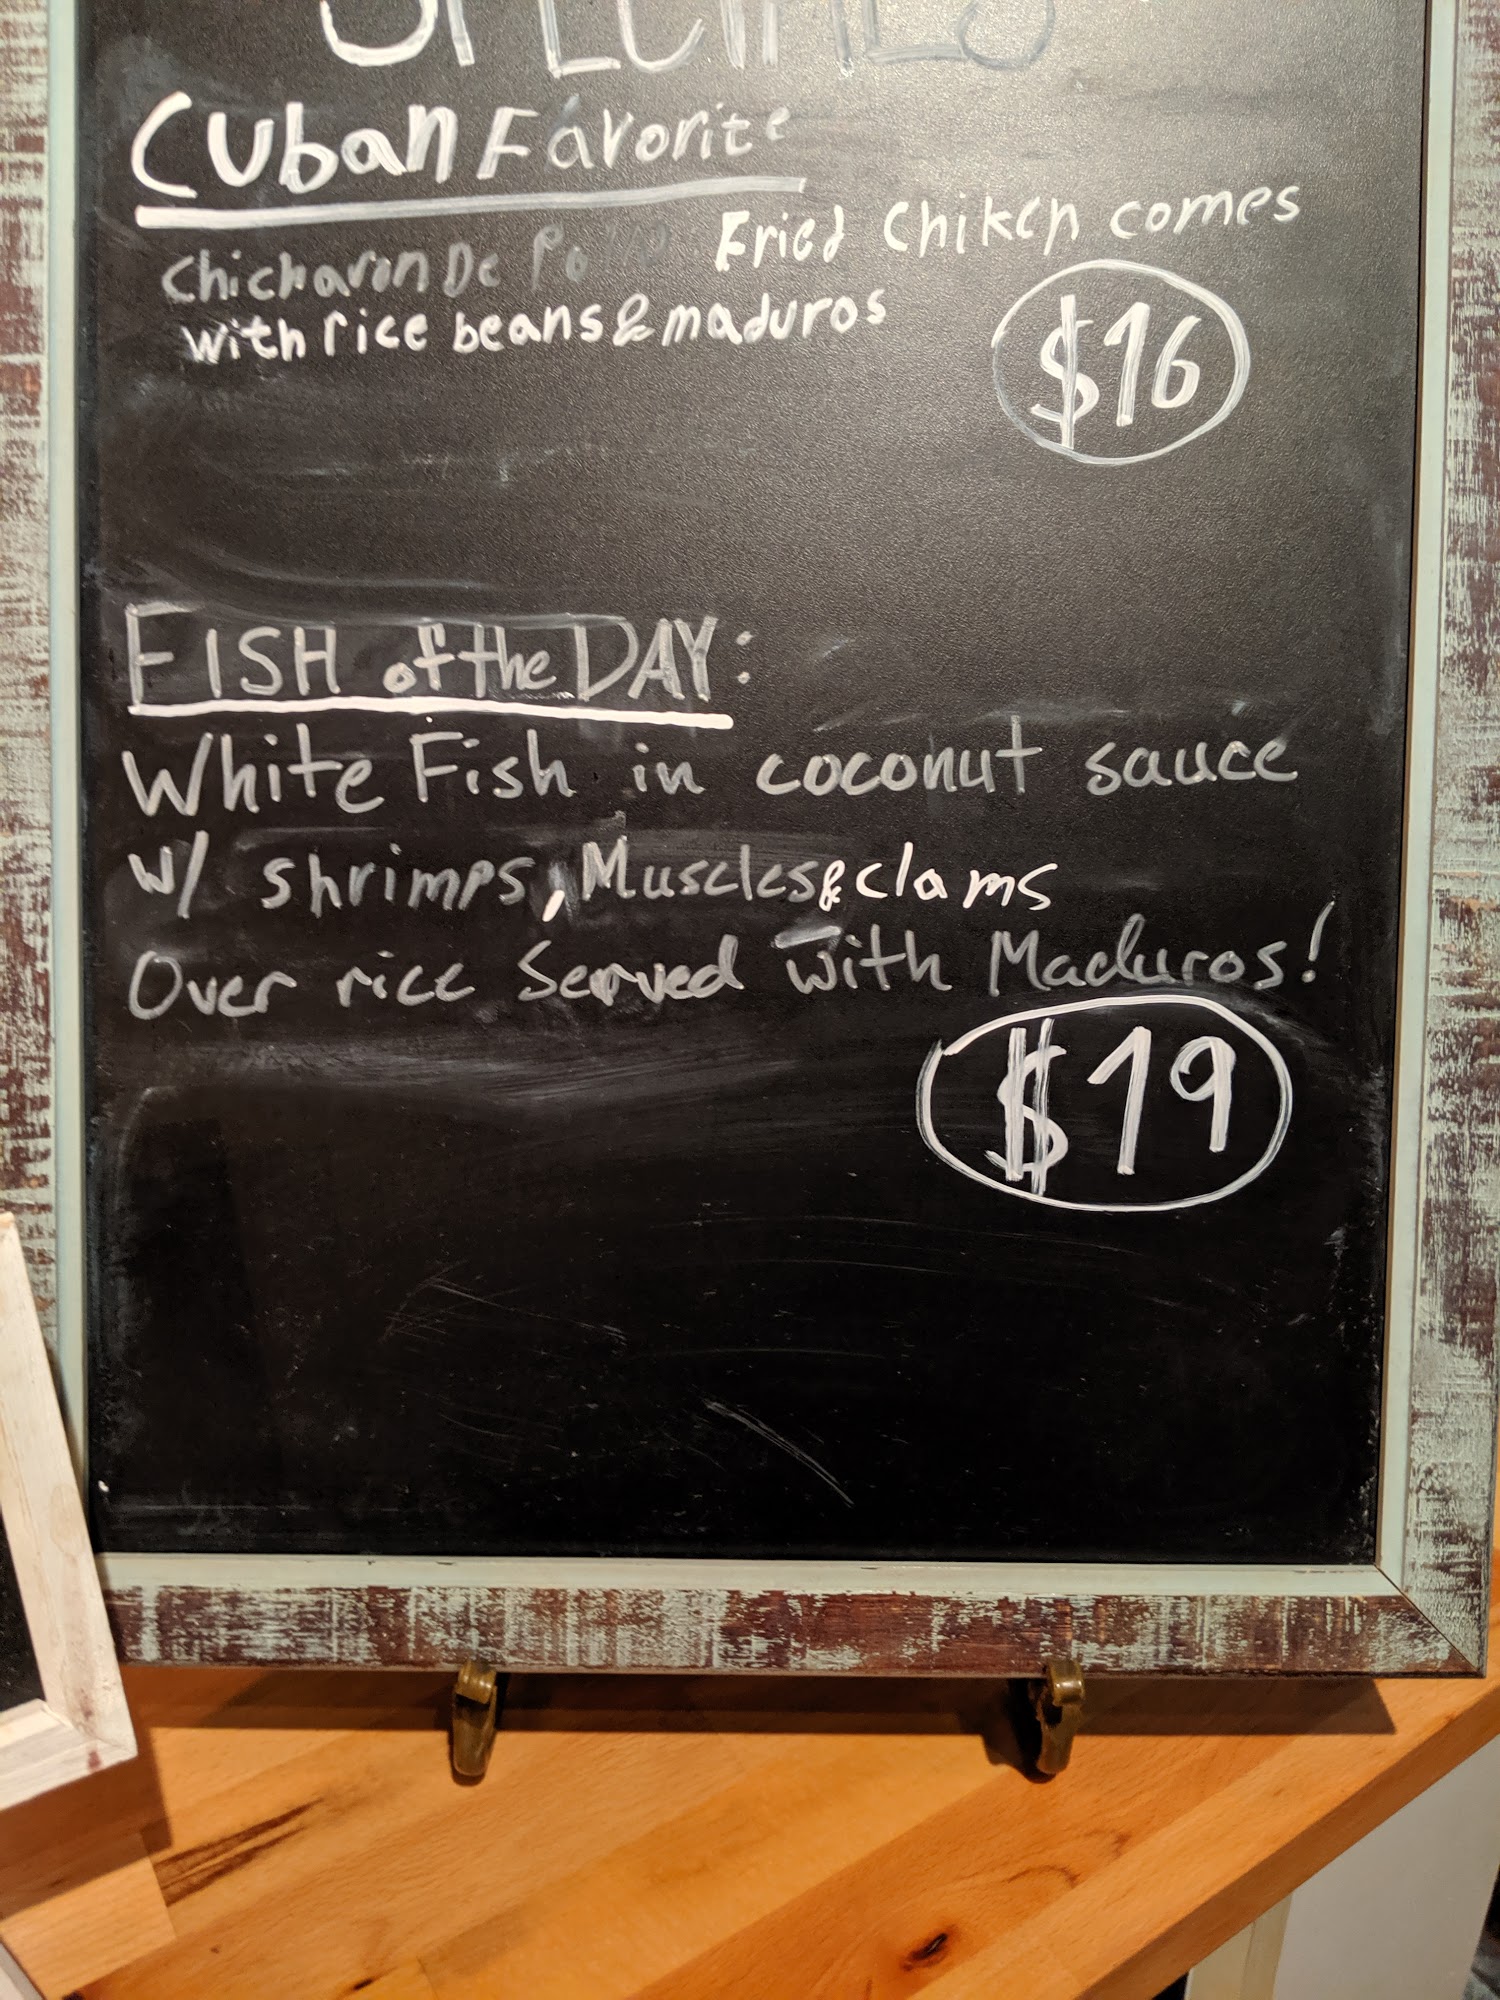 SPECIALS
Cuban Favorite
Chicharon De Pollo Fried Chiken comes
with rice beans & maduros
$16
FISH of the DAY:
White Fish in coconut sauce
w/ shrimps, Muscles & clams
Over rice Served with Maduros!
$19